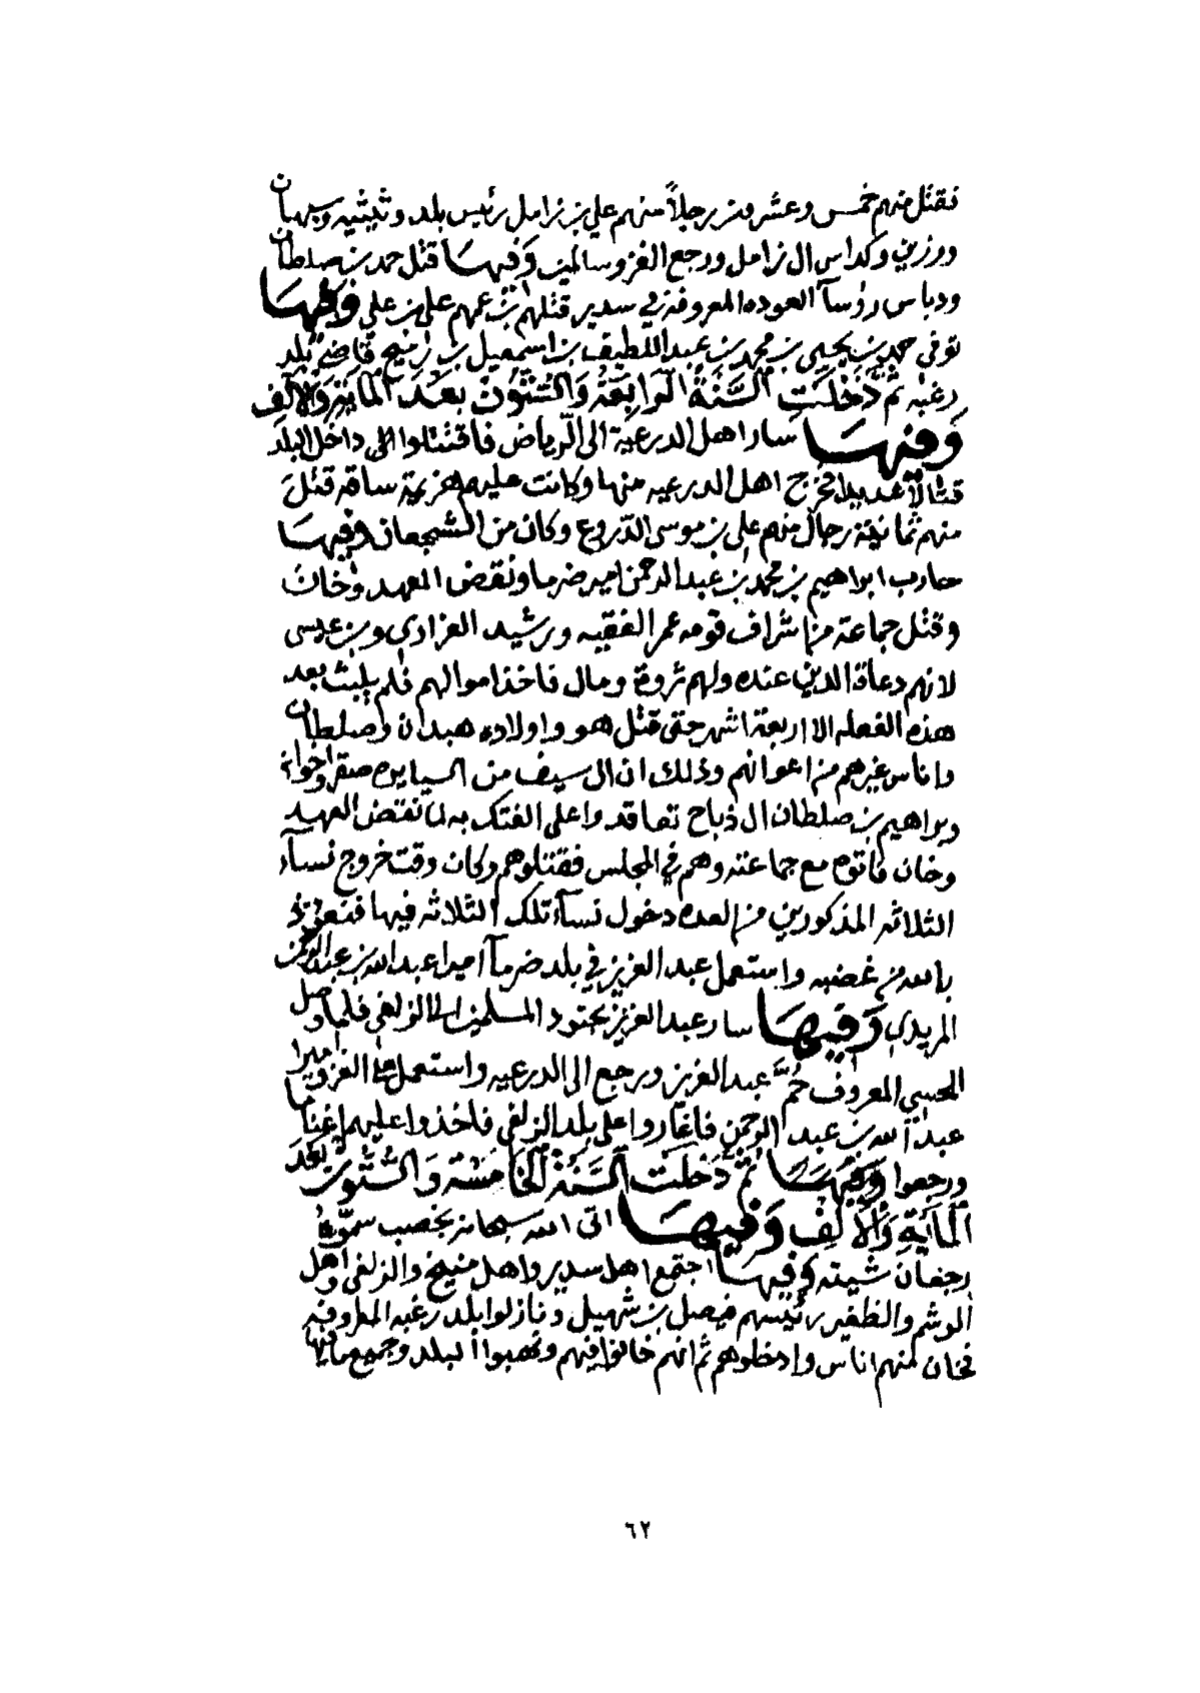 فقتل منهم خمس وعشرون رجلاً منهم علي بن زامل رئيس بلد وثيثيه وسبهان
ورزين وكداس ال زامل ورجع الغزو سالمين وَفيهَا قتل حمد بن صلطان
ودباس رؤسآ العوده المعروفة في سدير قتلهم بن عمهم علي بن علي وَفيهَا
توفي حمد بن يحيى بن محمد بن عبد اللطيف بن اسمعيل بن رميح قاضي بلد
رغبه ثم دَخَلَت السَّنَةُ الرَابِعَةُ وَالسِّتُونْ بعْدَ المايَةِ وَالألف
وَفيهَا سار اهل الدرعية الى الرياض فاقتتلوا في داخل البلد
قتالاً عديدا فخرج اهل الدرعيه منها وكانت عليهم هزيمة ساقه قتل
منهم ثمانية رجال منهم علي بن موسى الدروع وكان من الشجعان وفيهَا
حارب ابراهيم بن محمد بن عبد الرحمن امير ضرما ونقض العهد وخان
وقتل جماعة من اشراف قومه عمر الفقيه ورشيد العزادي وبن عيسى
لانهم دعاة الدين عنده ولهم ثروة ومال فاخذ اموالهم فلم يلبث بعد
هذه الفعله الا اربعة اشهر حتى قتل هو واولاده هبدان وصلطان
واناس غيرهم من اعوانهم وذلك ان ال سيف من السيايره صقر واخوانه
وبراهيم بن صلطان ال ذباح تعاقدوا على الفتك به لما نقض العهد
وخان فاتوه مع جماعته وهم في المجلس فقتلوهم وكان وقت خروج نسآء
الثلاثه المذكورين من العده دخول نسآء تلك الثلاثه فيها فنعوذ
بالله من غضبه واستعمل عبد العزيز في بلد ضرمآ اميرا عبد الله بن عبد الرحمن
المريدي وَفيهَا سار عبد العزيز بجنود المسلمين الى الزلفي فلما وصل
العبسي المعروف حُمَّ عبد العزيز ورجع الى الدرعيه واستعمل على الغزو اميرا
عبد الله بن عبد الرحمن فاغاروا على بلد الزلفي فاخذوا عليهم اغناما
ورجعوا وَفيهَا ثمَّ دَخَلَت السَّنَةُ الخَامسَة وَالسِّتُون بَعْدَ
المايَةِ وَالألفْ وَفيهَا اتى الله سبحانه بخصب سمّوه
رجعان شيته وفيهَا اجتمع اهل سدير واهل منيخ والزلفي واهل
الوشم والظفير رئيسهم فيصل بن شهيل ونازلوا بلد رغبه المعروفه
فخان منهم اناس وادخلوهم ثم انهم خالفوا فيهم ونهبوا البلد وجميع ما فيها
٦٢